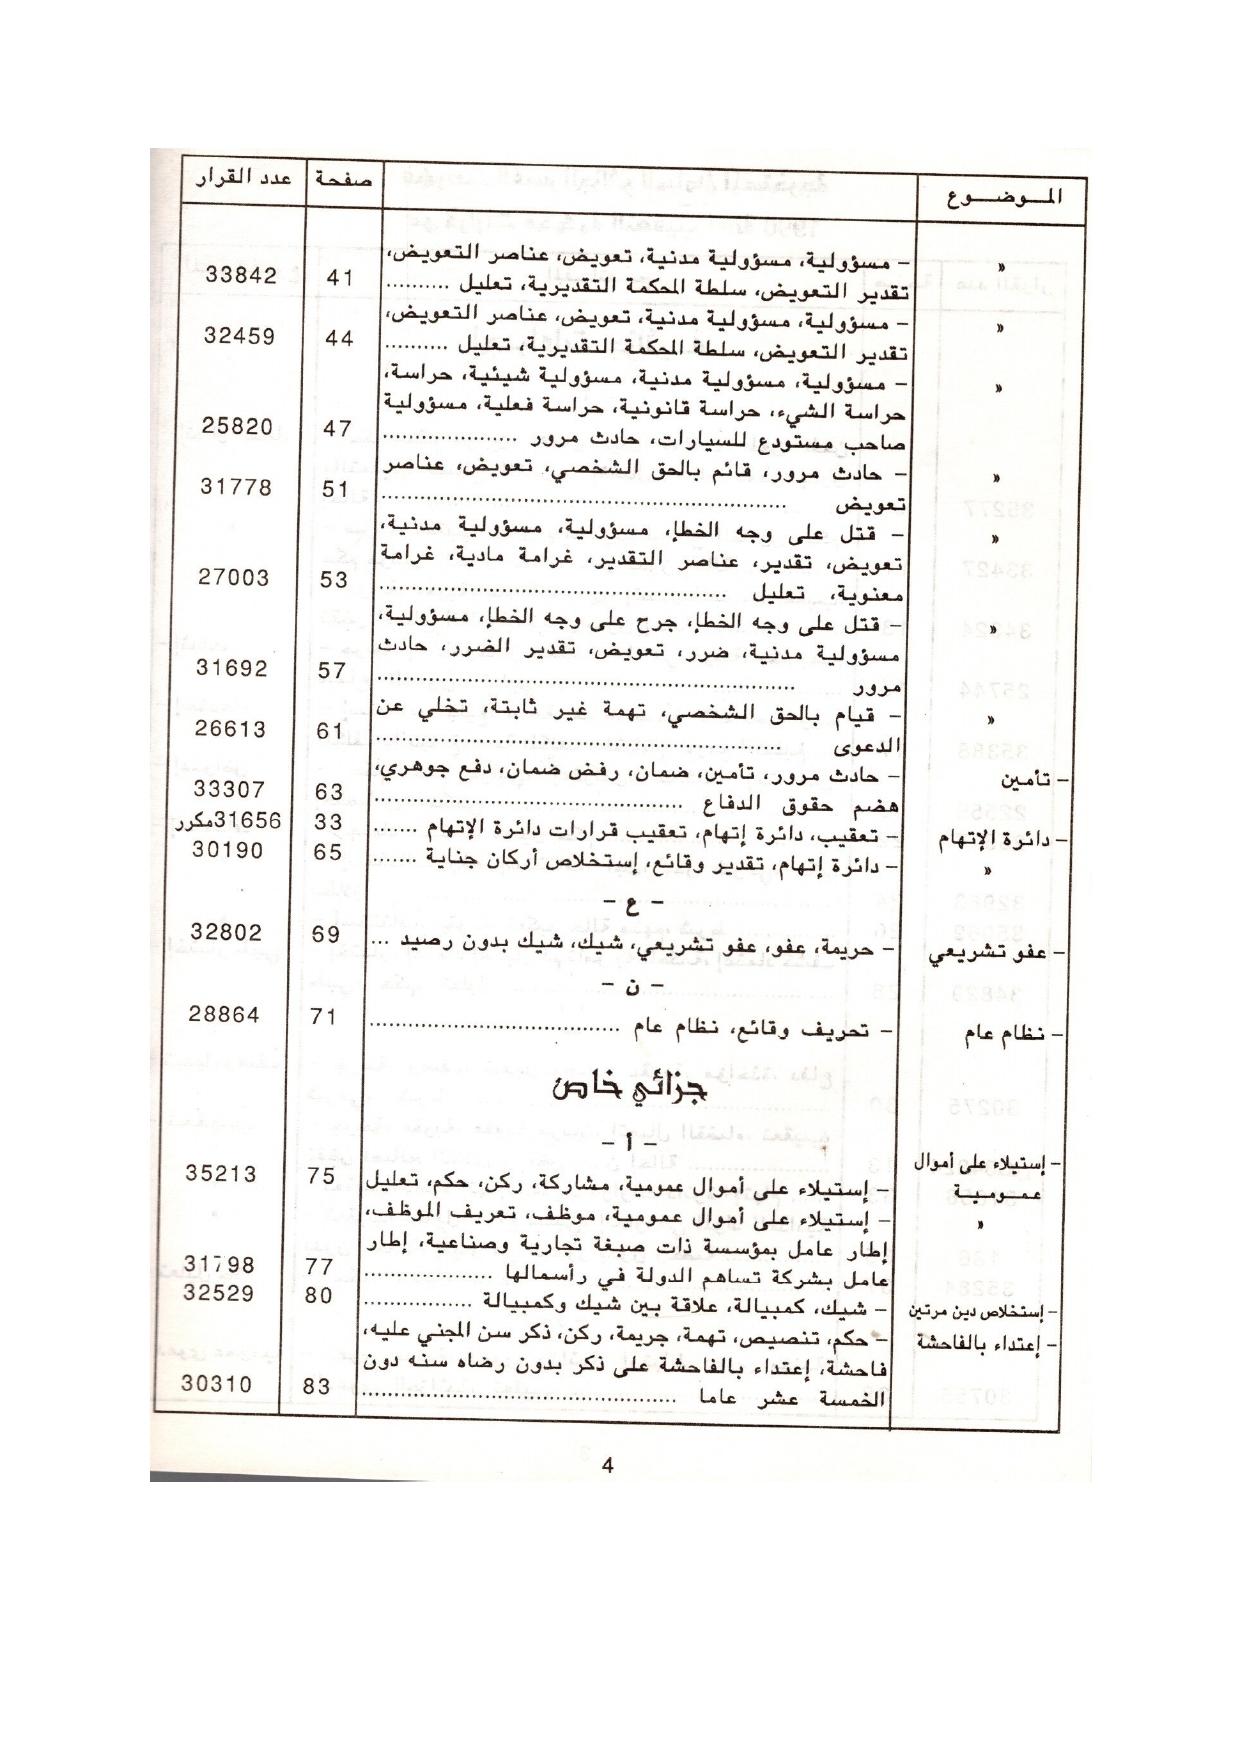 الموضوع صفحة عدد القرار
« – مسؤولية، مسؤولية مدنية، تعويض، عناصر التعويض،
تقدير التعويض، سلطة المحكمة التقديرية، تعليل .......... 41 33842
« – مسؤولية، مسؤولية مدنية، تعويض، عناصر التعويض،
تقدير التعويض، سلطة المحكمة التقديرية، تعليل .......... 44 32459
« – مسؤولية، مسؤولية مدنية، مسؤولية شيئية، حراسة،
حراسة الشيء، حراسة قانونية، حراسة فعلية، مسؤولية
صاحب مستودع للسيارات، حادث مرور .................... 47 25820
« – حادث مرور، قائم بالحق الشخصي، تعويض، عناصر
تعويض ............................................................ 51 31778
« – قتل على وجه الخطإ، مسؤولية، مسؤولية مدنية،
تعويض، تقدير، عناصر التقدير، غرامة مادية، غرامة
معنوية، تعليل .................................................... 53 27003
« – قتل على وجه الخطإ، جرح على وجه الخطإ، مسؤولية،
مسؤولية مدنية، ضرر، تعويض، تقدير الضرر، حادث
مرور .............................................................. 57 31692
« – قيام بالحق الشخصي، تهمة غير ثابتة، تخلي عن
الدعوى ............................................................ 61 26613
– تأمين – حادث مرور، تأمين، ضمان، رفض ضمان، دفع جوهري،
هضم حقوق الدفاع .............................................. 63 33307
– دائرة الإتهام – تعقيب، دائرة إتهام، تعقيب قرارات دائرة الإتهام ....... 33 31656مكرر
« – دائرة إتهام، تقدير وقائع، إستخلاص أركان جناية ....... 65 30190
– ع –
– عفو تشريعي – حريمة، عفو، عفو تشريعي، شيك، شيك بدون رصيد ... 69 32802
– ن –
– نظام عام – تحريف وقائع، نظام عام ...................................... 71 28864
جزائي خاص
– أ –
– إستيلاء على أموال
عمومية – إستيلاء على أموال عمومية، مشاركة، ركن، حكم، تعليل 75 35213
« – إستيلاء على أموال عمومية، موظف، تعريف الموظف،
إطار عامل بمؤسسة ذات صبغة تجارية وصناعية، إطار
عامل بشركة تساهم الدولة في رأسمالها ................... 77 31798
– إستخلاص دين مرتين – شيك، كمبيالة، علاقة بين شيك وكمبيالة ................ 80 32529
– إعتداء بالفاحشة – حكم، تنصيص، تهمة، جريمة، ركن، ذكر سن المجني عليه،
فاحشة، إعتداء بالفاحشة على ذكر بدون رضاه سنه دون
الخمسة عشر عاما ............................................... 83 30310
4